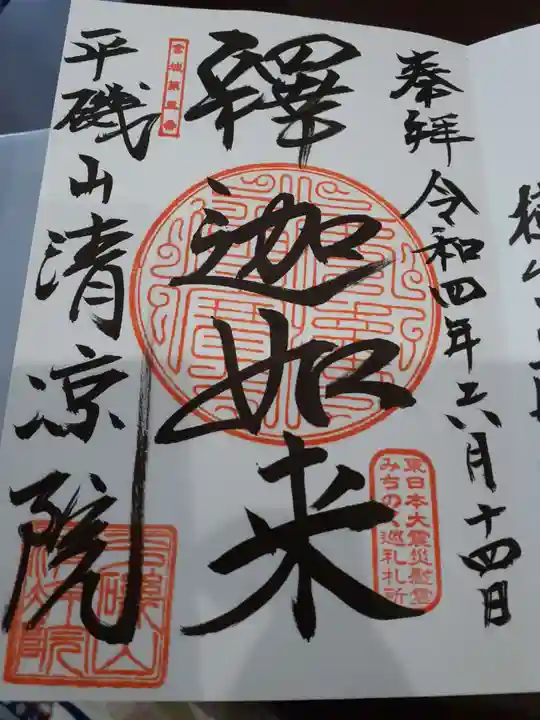 奉拝 令和四年六月十四日
釋迦如来
平磯山清凉院
東日本大震災慰霊
みちのく巡礼札所